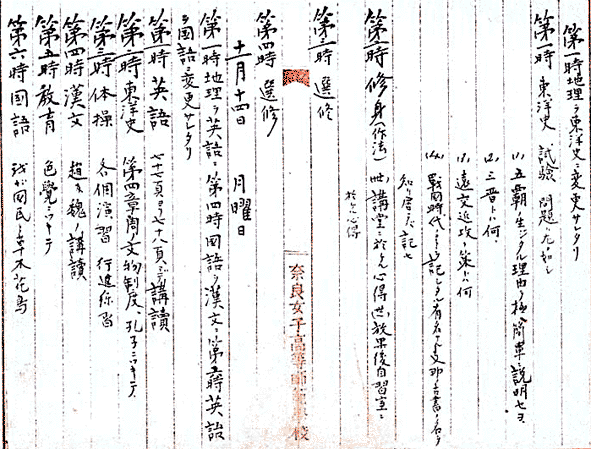 第一時地理ヲ東洋史ニ変更サレタリ
第一時 東洋史 試験 問題ハ左ノ如シ
(1) 五覇ノ生ジタル理由ヲ極簡単ニ説明セヨ
(2) 三晋トハ何
(3) 遠交近攻ノ策トハ何
(4) 戦国時代ニ記シタル有名ナル支那ノ書ノ名ヲ
知リ居ラバ記セ
第一時 修身(作法) 講堂ニ於ケル心得 放課後自習室ニ
於ケル心得
第三時 選修
奈良女子高等師範学校
第四時 選修
十一月十四日 月曜日
第一時地理ヲ英語ニ第四時国語ヲ漢文ニ第五時英語
ヲ国語ニ変更サレタリ
第一時 英語 七十七頁ヨリ七十八頁マデ講読
第二時 東洋史 第四章周ノ文物制度、孔子ニツキテ
第三時 体操 各個演習 行進練習
第四時 漢文 趙ト魏ノ講読
第五時 教育 色覚ニツキテ
第六時 国語 我ガ国民ト草木花鳥